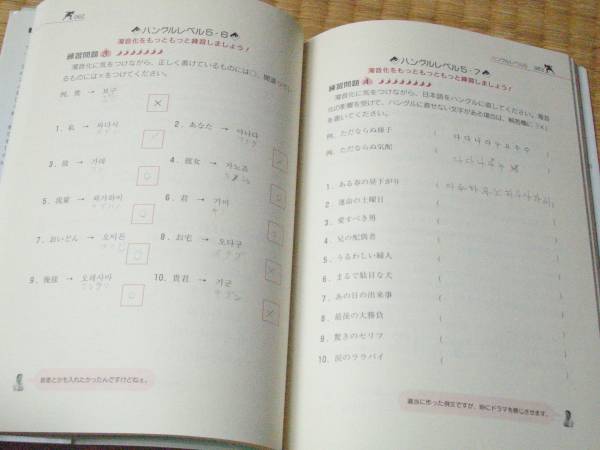 062
ハングルレベル5・6
濁音化をもっともっと練習しましょう!
練習問題
濁音化に気をつけながら、正しく書けているものには○、間違って
るものには×をつけてください。
例. 僕 → 보구
×
1. 私 → 와다시
2. あなた → 아나다
3. 彼 → 가레
○
4. 彼女 → 가노죠
5. 我輩 → 와가하이
○
6. 君 → 기미
7. おいどん → 오이돈
○
8. お宅 → 오타구
×
9. 俺様 → 오레사마
○
10. 貴君 → 기군
×
ハングルレベル5・7
063
ハングルレベル5・7
濁音化をもっともっと練習しましょう!
練習問題
濁音化に気をつけながら、日本語をハングルに直してください。濁音
化の影響を受けて、ハングルに直せない文字がある場合は、解答欄に「×」
を書いてください。
例. ただならぬ様子
例. ただならぬ気配
1. ある春の昼下がり
2. 運命の土曜日
3. 愛すべき男
4. 兄の配偶者
5. うるわしい婦人
6. まるで駄目な犬
7. あの日の出来事
8. 最後の大勝負
9. 驚きのセリフ
10. 涙のララバイ
適当に作った例文ですが、妙にドラマを感じさせます。